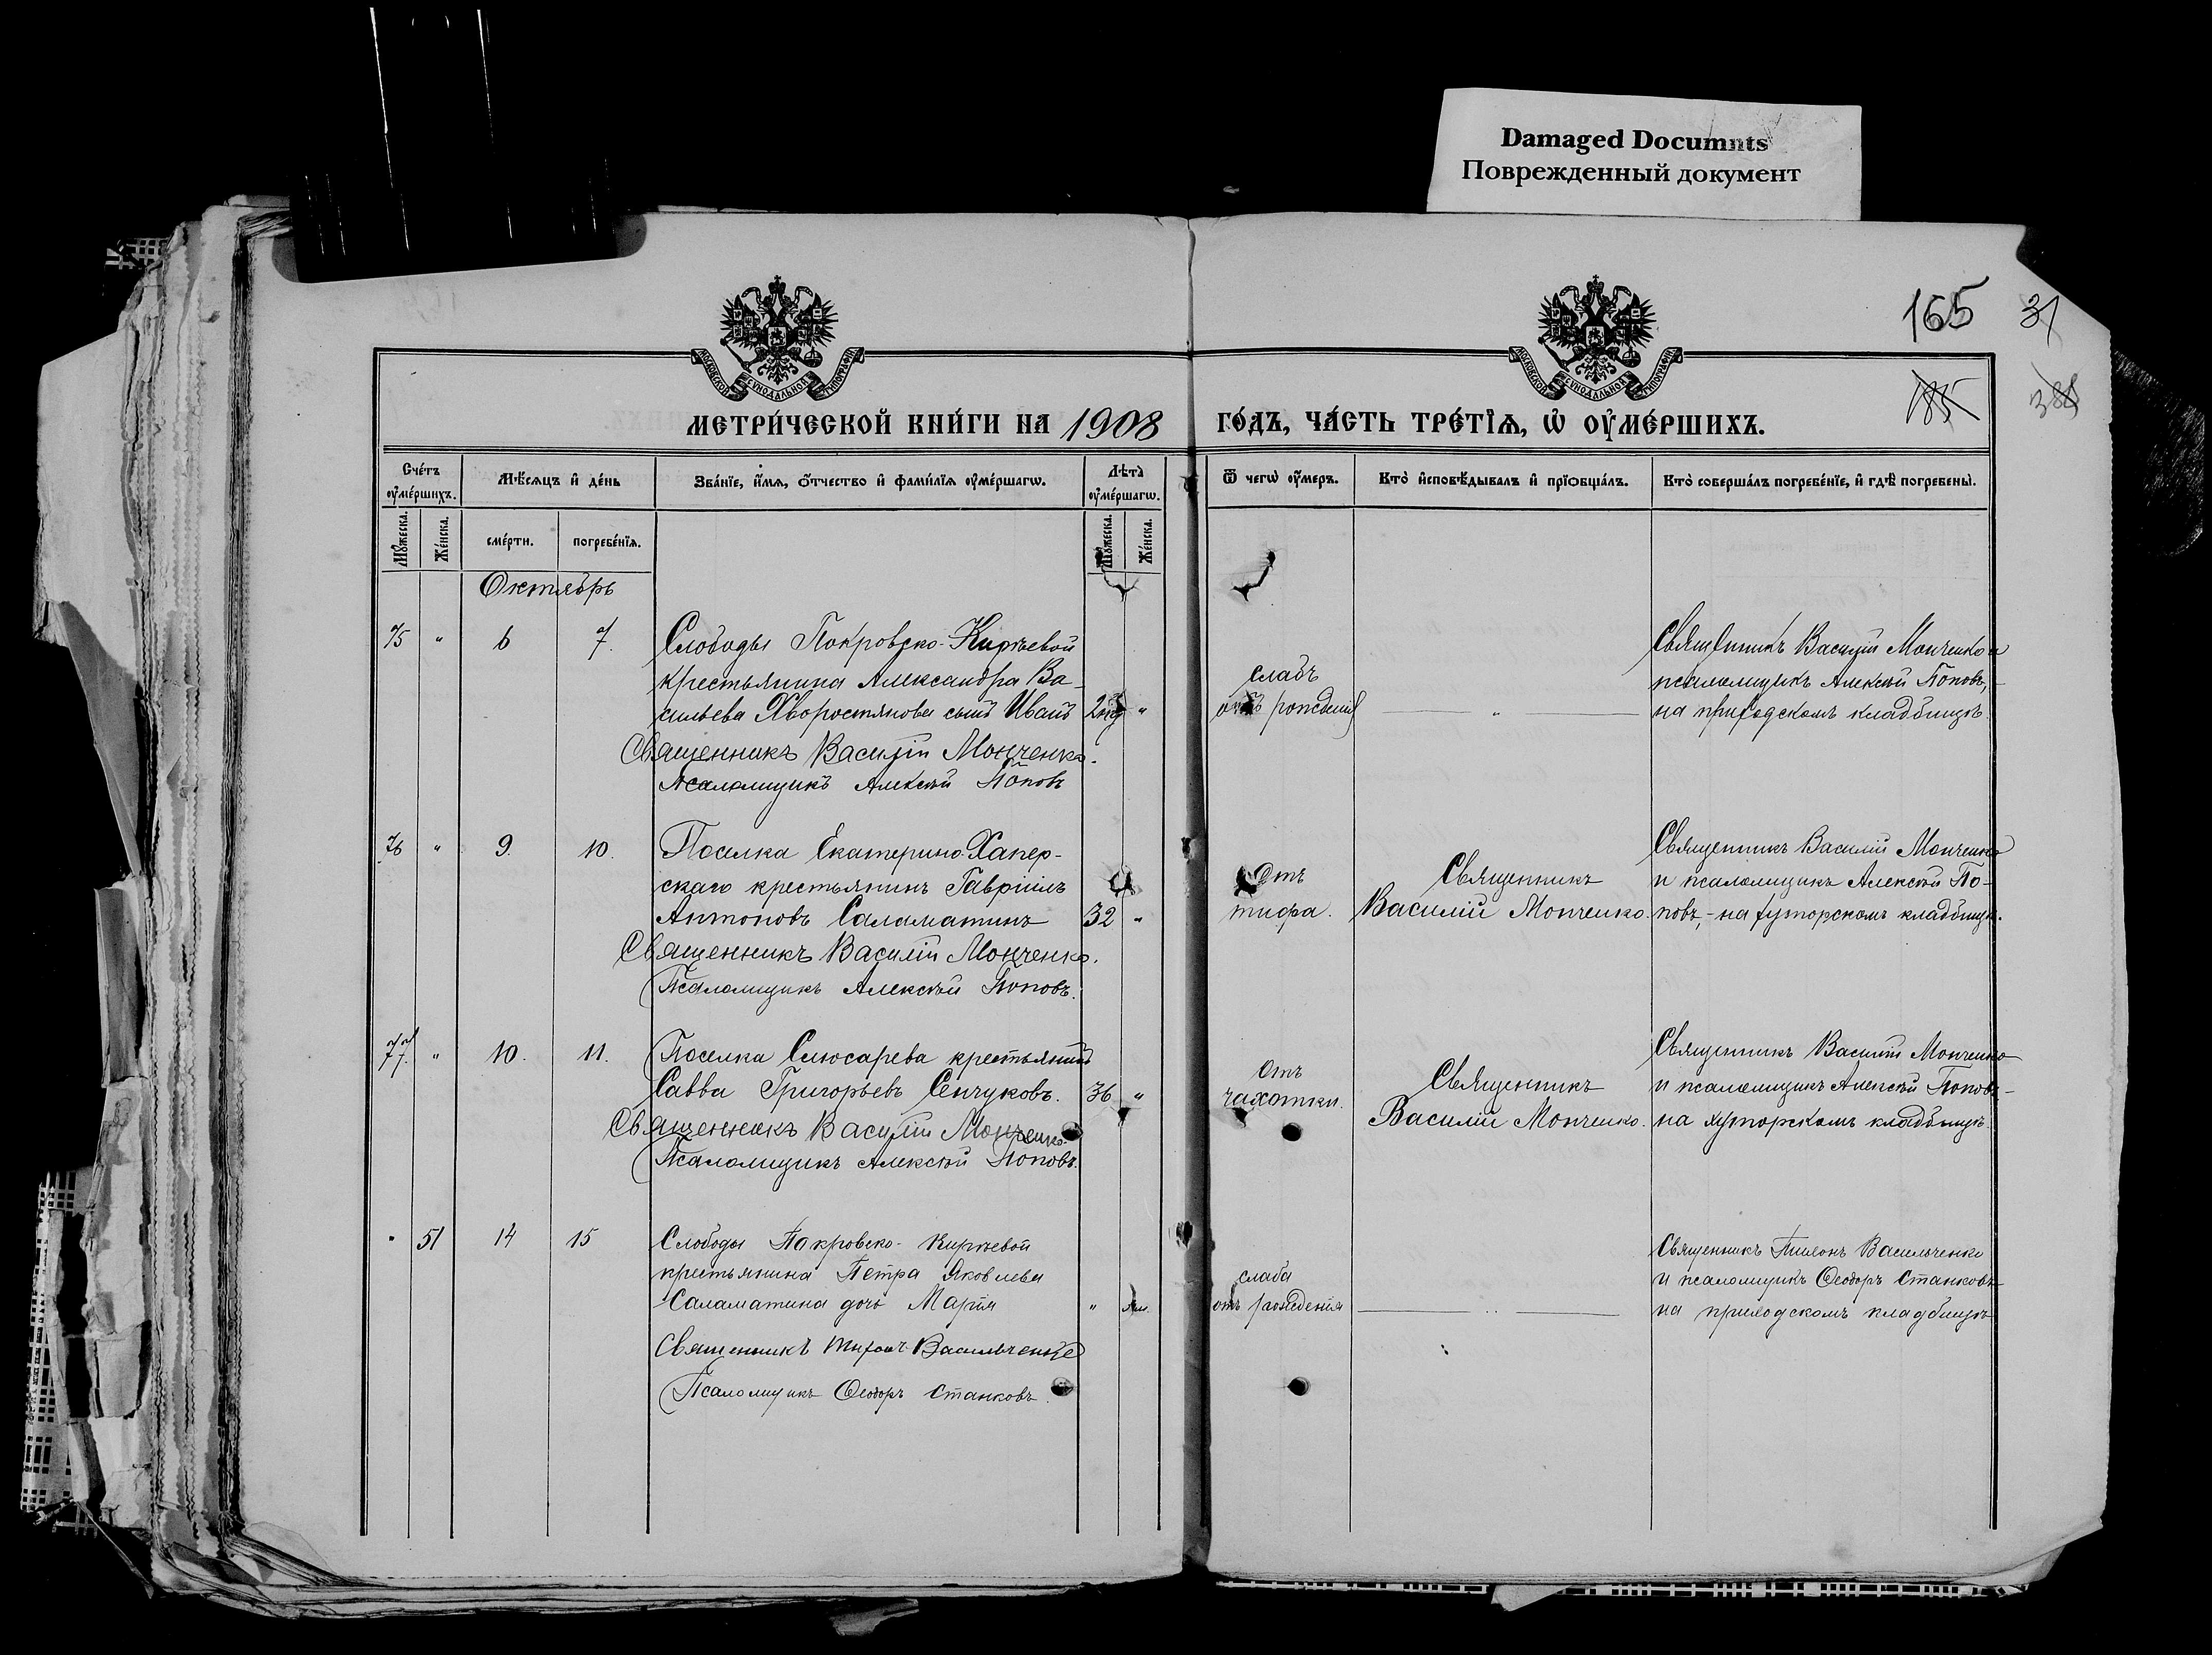 Damaged Documnts
Поврежденный документ
165 31
185 388
МОСКОВСКОЙ СУНОДАЛЬНОЙ ТИПОГРАФІИ
МОСКОВСКОЙ СУНОДАЛЬНОЙ ТИПОГРАФІИ
МЕТРИ́ЧЕСКОЙ КНИ́ГИ НА 1908 ГО́ДЪ, ЧА́СТЬ ТРЕ́ТІѦ, Ѡ҆ ОУ҆МЕ́РШИХЪ.
Сче́тъ оу҆ме́ршихъ.
Мѣ́сяцъ и҆ де́нь
Зва́нїе, и҆́мѧ, ѻ҆́тчество и҆ фами́лїѧ оу҆ме́ршагѡ.
Лѣта̀ оу҆ме́ршагѡ.
Ѿ чегѡ̀ оу҆́меръ.
Кто̀ и҆сповѣ́дывалъ и҆ прїѻбща́лъ.
Кто̀ соверша́лъ погребе́нїе, и҆ гдѣ̀ погребены̀.
Мꙋ́жеска.
Же́нска.
сме́рти.
погребе́нїѧ.
Мꙋ́жеска.
Же́нска.
Октябрь
75 " 6 7.
Слободы Покровско-Киръевой
крестьянина Александра Ва-
сильева Хворостянова сынъ Иванъ 2 "
Священникъ Василій Монченко.
Псаломщикъ Алексѣй Поповъ
слабъ
отъ рожденія
"
Священникъ Василій Монченко и
псаломщикъ Алексѣй Поповъ, -
на приходскомъ кладбищѣ.
76 " 9. 10.
Поселка Екатерино-Хапер-
скаго крестьянинъ Гавріилъ
Антоновъ Саламатинъ 32 "
Священникъ Василій Монченко.
Псаломщикъ Алексѣй Поповъ.
Отъ
тифа.
Священникъ
Василій Монченко.
Священникъ Василій Монченко
и псаломщикъ Алексѣй По-
повъ, - на хуторскомъ кладбищѣ.
77. " 10. 11.
Поселка Слюсарева крестьянинъ
Савва Григорьевъ Сенчуковъ. 36 "
Священникъ Василій Монченко.
Псаломщикъ Алексѣй Поповъ.
Отъ
чахотки.
Священникъ
Василій Монченко.
Священникъ Василій Монченко
и псаломщикъ Алексѣй Поповъ -
на хуторскомъ кладбищѣ.
" 51 14 15
Слободы Покровско-Киреевой
крестьянина Петра Яковлева
Саламатина дочь Марія "
Священникъ Васильченко
Псаломщикъ Ѳеодоръ Станковъ.
слаба
отъ рожденія
Священникъ Васильченко
и псаломщикъ Ѳеодоръ Станковъ
на приходскомъ кладбищѣ